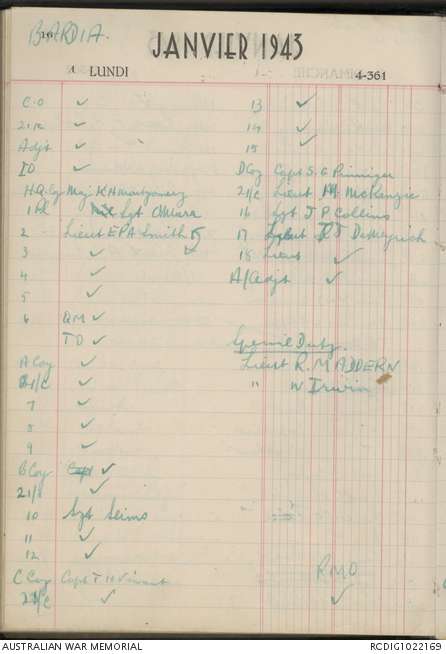 BARDIA.
JANVIER 1943
4 LUNDI
4-361
C.O ✓
2i/c ✓
Adjt ✓
IO ✓
H.Q. Coy Maj. K H Montgomery
1 Pl Sgt OMara
2 Lieut E P A Smith
3 ✓
4 ✓
5 ✓
6 QM ✓
TO ✓
A Coy ✓
2i/c ✓
7 ✓
8 ✓
9 ✓
B Coy Capt ✓
2i/c ✓
10 Sgt Seims
11 ✓
12 ✓
C Coy Capt T H
2i/c ✓
13 ✓
14 ✓
15 ✓
D Coy Capt S. G
2i/c Lieut McKenzie
16 Sgt J P Collins
17
18 Lieut ✓
A/Adjt ✓
Special Duty.
Lieut R. MADDERN
" W Irwin
RMO
✓
AUSTRALIAN WAR MEMORIAL
RCDIG1022169